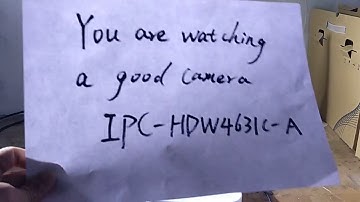 You are watching
a good camera
IPC-HDW4631C-A